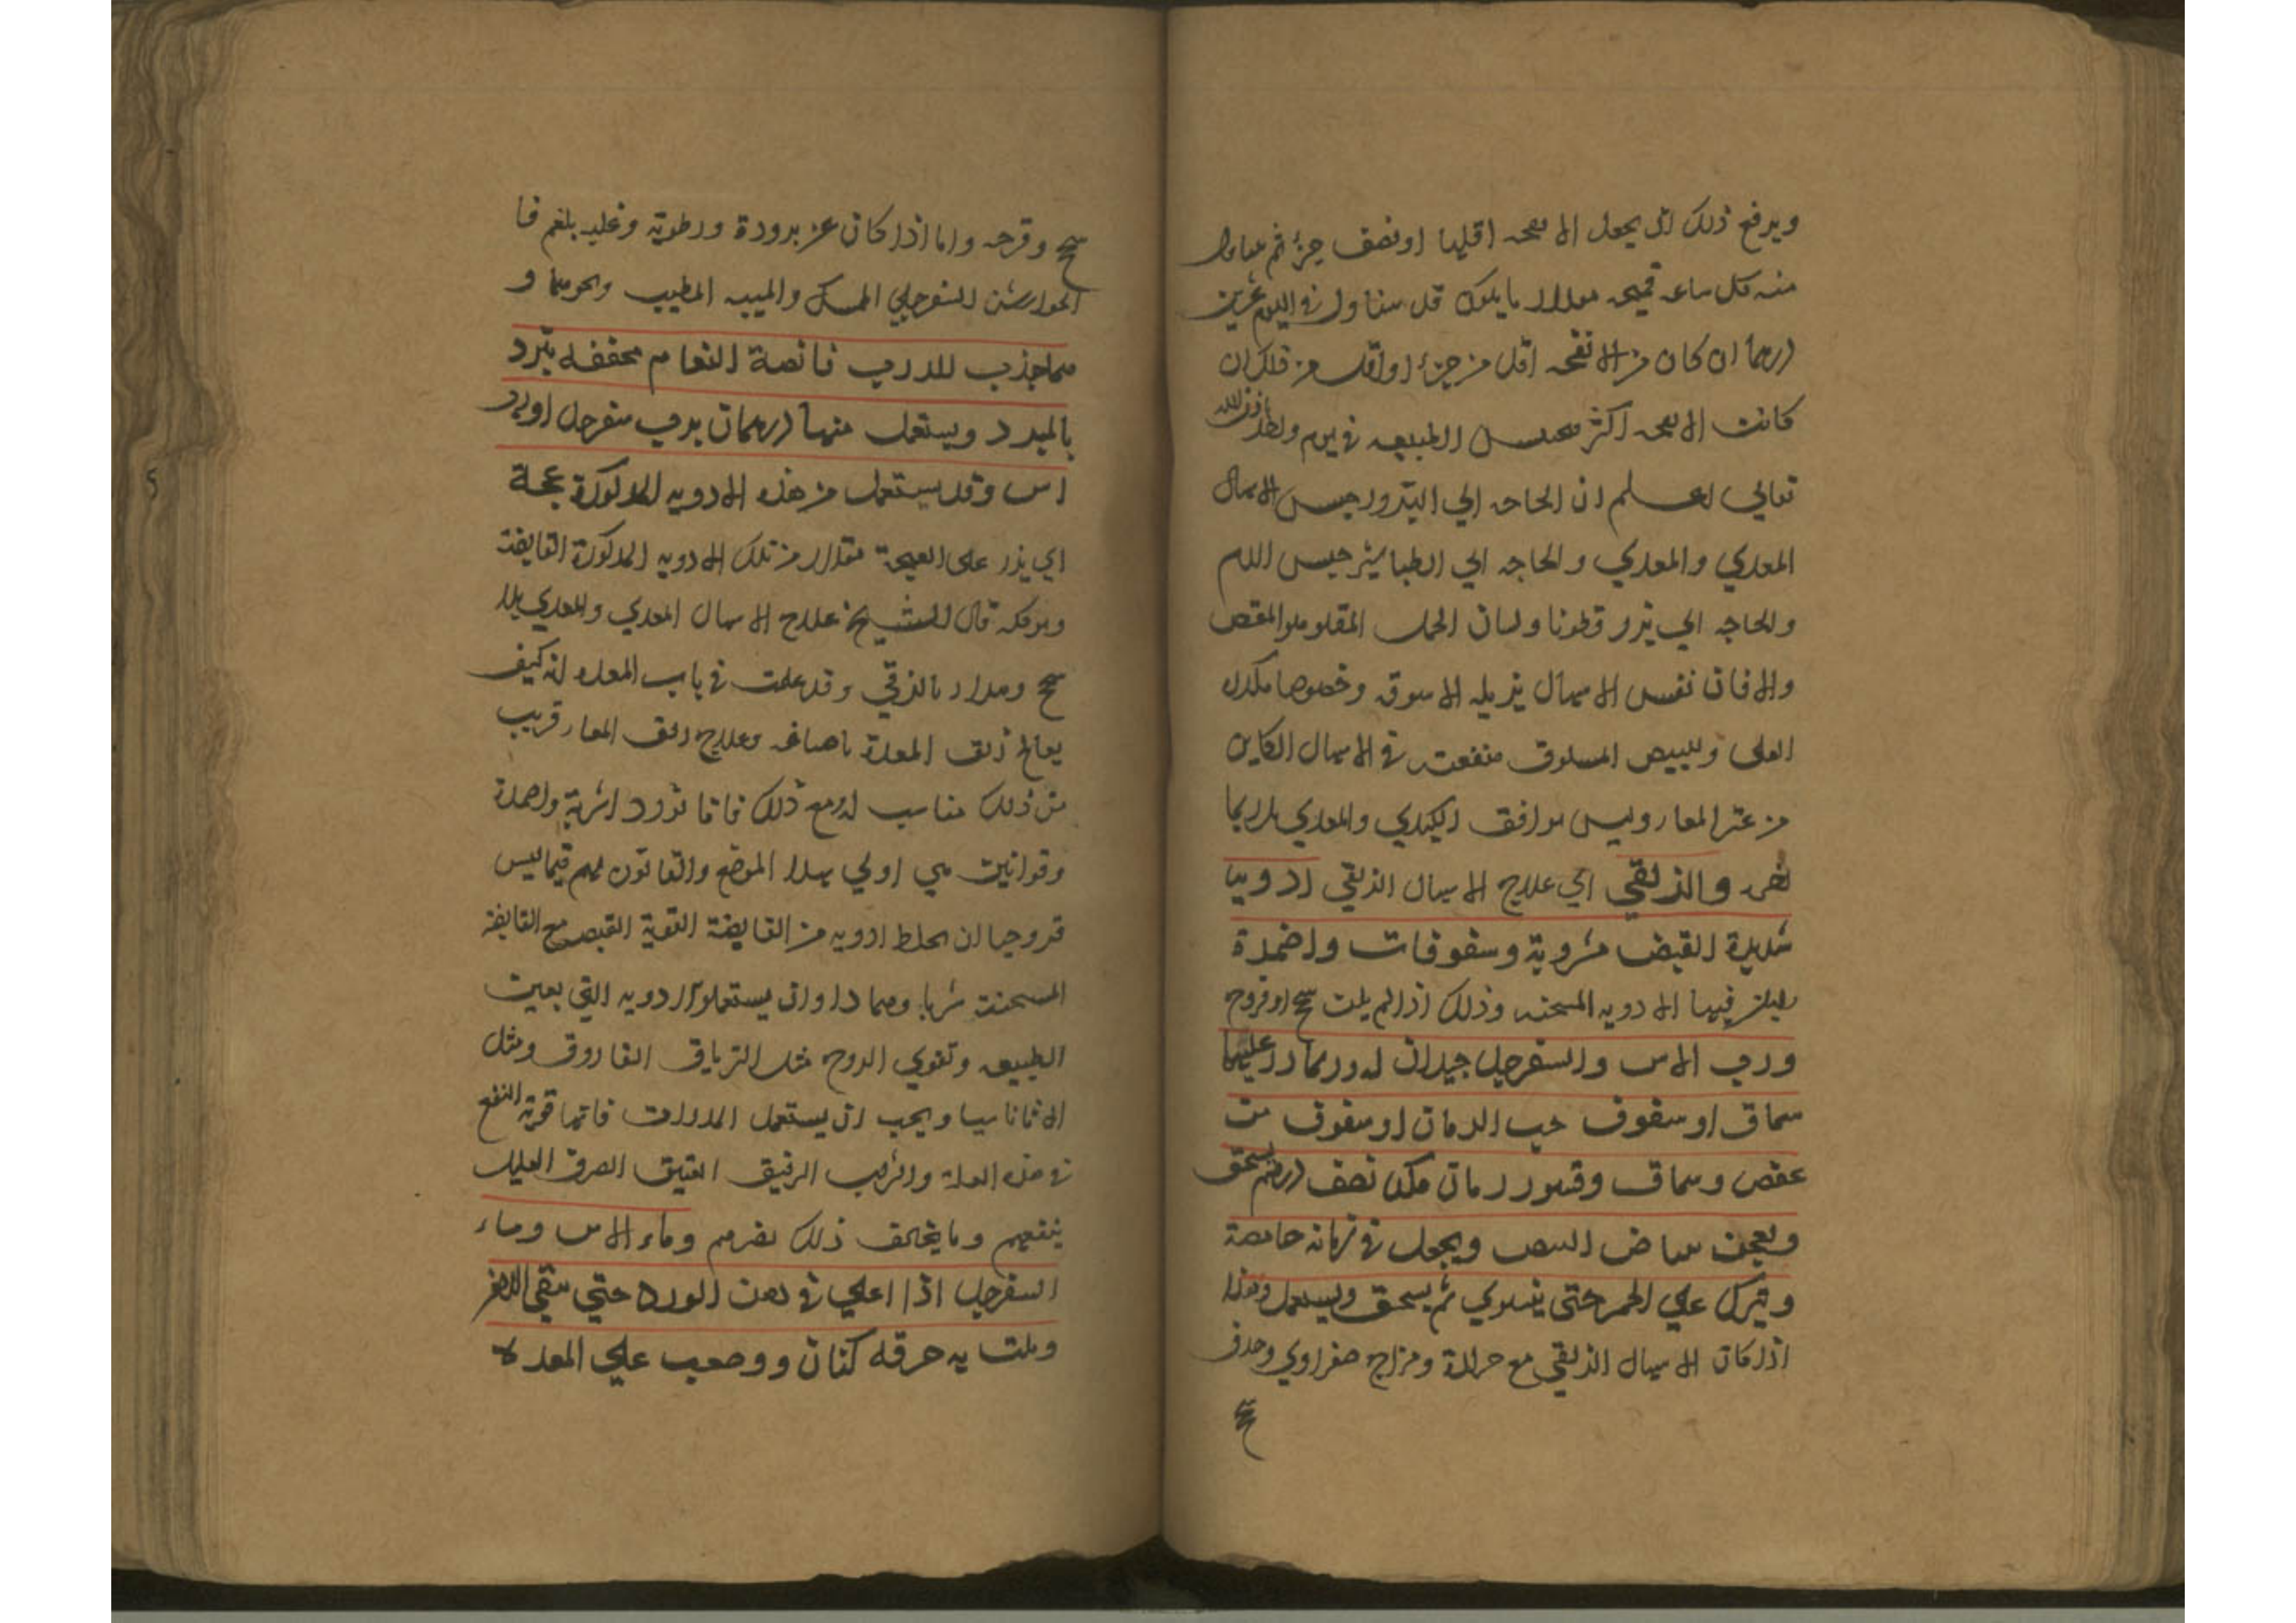 ويرفع ذلك ان يجعل الانفحه اقلها او نصف جزء ثم
منه كل ساعه قمحه ما يكون قد يتناول في اليوم عشرين
درهما ان كان من الانفحه اقل من جزء او اقل من ذلك ان
كانت الانفحه اكثر الطبيعه في يوم واحد باذن الله
تعالي اعلم ان الحاجه الي البزور حبس الاسهال
المعدي والمعوي والحاجه الي الطباشير حبس الدم
والحاجه الي بزر قطونا ولسان الحمل المقلو هو المغص
والا فان نفس الاسهال يزيله الاسوقه وخصوصا مكرر
القلي وللبيض المسلوق منفعته في الاسهال الكاين
من المعا وليس يوافق الكبدي والمعدي
والزلقي اي علاج الاسهال الزلقي ادويه
شديدة القبض مشروبة وسفوفات واضمدة
فيها الادويه المسخنه وذلك اذا لم يكن سحج او قروح
ورب الاس والسفرجل جيدان له وربما ذر عليها
سماق او سفوف حب الرمان او سفوف من
عفص وسماق وقشور رمان مكد نصف درهم يسحق
ويعجن ببياض البيض ويجعل في رمانه حامضة
ويترك علي الجمر حتي يشوي ثم يسحق ويستعمل وهذا
اذا كان الاسهال الزلقي مع حرارة ومزاج صفراوي
سحج
سحج وقرحه واما اذا كان عن برودة ورطوبة وغلبه بلغم فا
الجوارشن السفرجلي الممسك والميبه المطيب ونحوهما و
مما جرب للذرب قانصة النعام مجففه تبرد
بالمبرد ويستعمل منها درهمان برب سفرجل او رب
اس وقد يستعمل من هذه الادويه المذكورة عجة
اي يذر علي العجة مقدار من تلك الادويه المذكورة القابضة
قال الشيخ علاج الاسهال المعدي والمعوي بلا
سحج وقد علمت في باب المعده انه كيف
يعالج زلق المعدة باصنافه وعلاج زلق المعا قريب
من ذلك مناسب له ومع ذلك فانا نورد اشربة واضمدة
وقوانين هي اولي بهذا الموضع والقانون لهم فيما ليس
قروحيا ان يخلط ادويه من القابضة القوية القبض مع القابضة
المسخنة شربا وضمادا وان يستعملوا الادويه التي تعين
الطبيعه وتقوي الروح مثل الترياق الفاروق ومثل
الاثاناسيا ويجب ان يستعمل المدرات فانها قوية النفع
في هذه العلة والشراب الرقيق العتيق الصرف القليل
ينفعهم وما يخالف ذلك يضرهم وماء الاس وماء
السفرجل اذا اغلي في دهن الورد حتي يبقي الدهن
وبلت به خرقه كتان ووضعت علي المعده